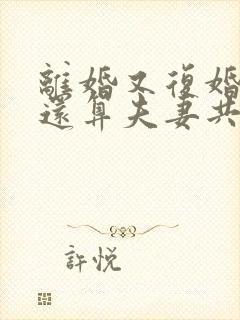 離婚又復婚
還算夫妻共
許悅